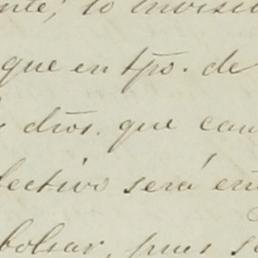 nte; lo invisi
que en tpo. de
dros. que cau
fectivo será en
bolsar, pues s